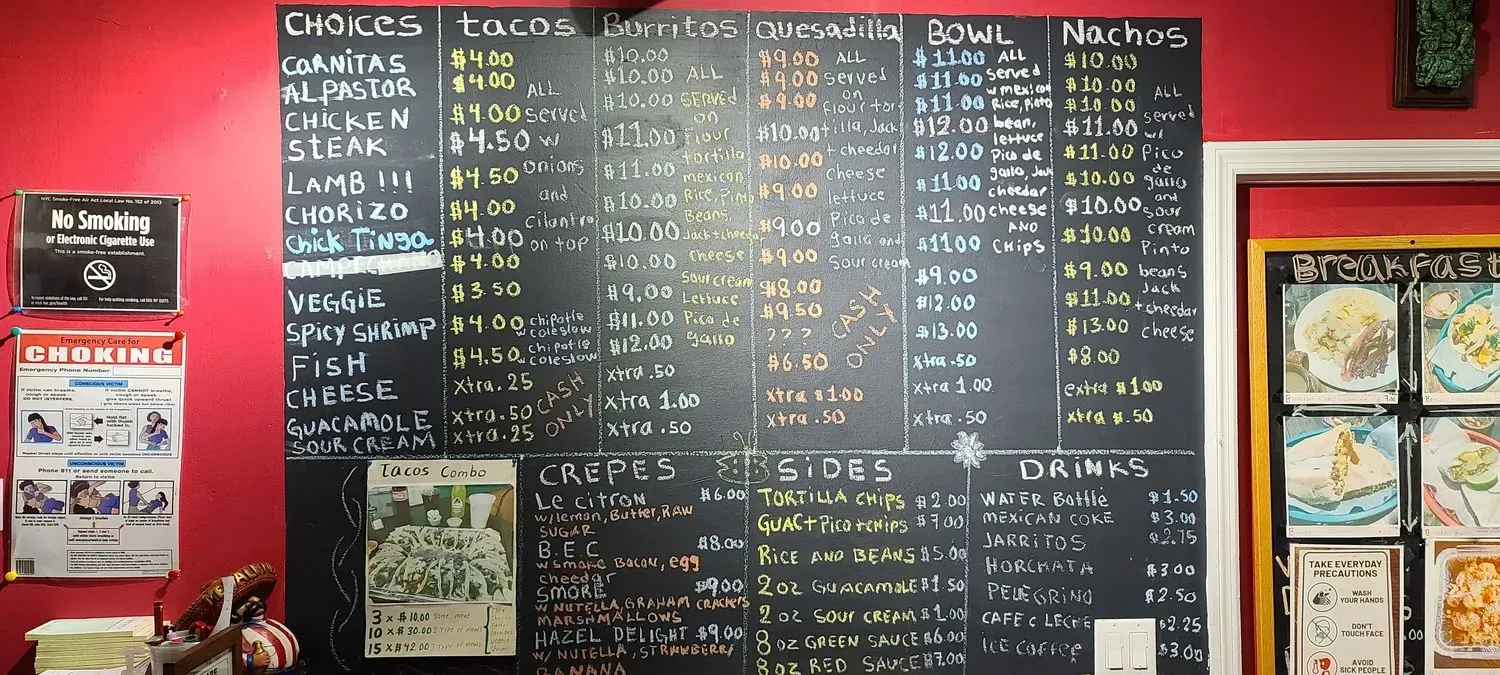 CHOICES
CARNITAS
AL PASTOR
CHICKEN
STEAK
LAMB !!!
CHORIZO
Chick Tinga
CAMPECHANO
VEGGIE
SPICY SHRIMP
FISH
CHEESE
GUACAMOLE
SOUR CREAM
tacos
$4.00
$4.00
$4.00
$4.50
$4.50
$4.00
$4.00
$4.00
$3.50
$4.00
$4.50
xtra .25
xtra .50
xtra .25
ALL
served
w
onions
and
cilantro
on top
chipotle
w coleslow
chipotle
w coleslow
CASH
ONLY
Burritos
$10.00
$10.00
$10.00
$11.00
$11.00
$10.00
$10.00
$10.00
$9.00
$11.00
$12.00
xtra .50
xtra 1.00
xtra .50
ALL
SERVED
on
Flour
tortilla
mexican
Rice, Pinto
Beans,
Jack+cheedar
cheese
Sour cream
Lettuce
Pico de
gallo
Quesadilla
$9.00
$9.00
$9.00
$10.00
$10.00
$9.00
$9.00
$9.00
$8.00
$9.50
???
$6.50
xtra $1.00
xtra .50
ALL
served
on
flour tor
tilla, Jack
+ cheedar
cheese
lettuce
Pico de
gallo and
Sour cream
CASH
ONLY
BOWL
$11.00
$11.00
$11.00
$12.00
$12.00
$11.00
$11.00
$11.00
$9.00
$12.00
$13.00
xtra .50
xtra 1.00
xtra .50
ALL
served
w mexican
Rice, pinto
bean,
lettuce
Pico de
gallo, Jack
cheedar
cheese
AND
CHIPS
Nachos
$10.00
$10.00
$10.00
$11.00
$11.00
$10.00
$10.00
$10.00
$9.00
$11.00
$13.00
$8.00
extra $1.00
xtra $.50
ALL
served
w/
Pico
de
gallo
and
sour
cream
Pinto
beans
Jack
+cheedar
cheese
Tacos Combo
3 x $10.00 Same meat
10 x $30.00 2 Type of meats
15 x $42.00
CREPES
Le citron $6.00
w/lemon, Butter, RAW
SUGAR
B.E.C $8.00
w smoke Bacon, egg
cheedar
SMORE $9.00
w NUTELLA, GRAHAM CRACKERS
MARSHMALLOWS
HAZEL DELIGHT $9.00
w/ NUTELLA, STRAWBERRY
BANANA
SIDES
TORTILLA CHIPS $2.00
GUAC+Pico+chips $7.00
RICE AND BEANS $5.00
2 oz GUACAMOLE $1.50
2 oz SOUR CREAM $1.00
8 oz GREEN SAUCE $6.00
8 oz RED SAUCE $7.00
DRINKS
WATER Bottle $1.50
MEXICAN COKE $3.00
JARRITOS $2.75
HORCHATA $3.00
PELEGRINO $2.50
CAFE C LECHE $2.25
ICE COFFEE $3.00
NYC Smoke-Free Air Act Local Law No. 152 of 2013
No Smoking
or Electronic Cigarette Use
This is a smoke-free establishment.
Emergency Care for
CHOKING
Emergency Phone Number
CONSCIOUS VICTIM
If victim can breathe,
cough or speak -
DO NOT INTERFERE.
If victim CANNOT breathe,
cough or speak -
give quick upward thrust
Hold fist
with thumb
tucked in.
UNCONSCIOUS VICTIM
Phone 911 or send someone to call.
Return to victim
Breakfast
TAKE EVERYDAY
PRECAUTIONS
WASH
YOUR HANDS
DON'T
TOUCH FACE
AVOID
SICK PEOPLE